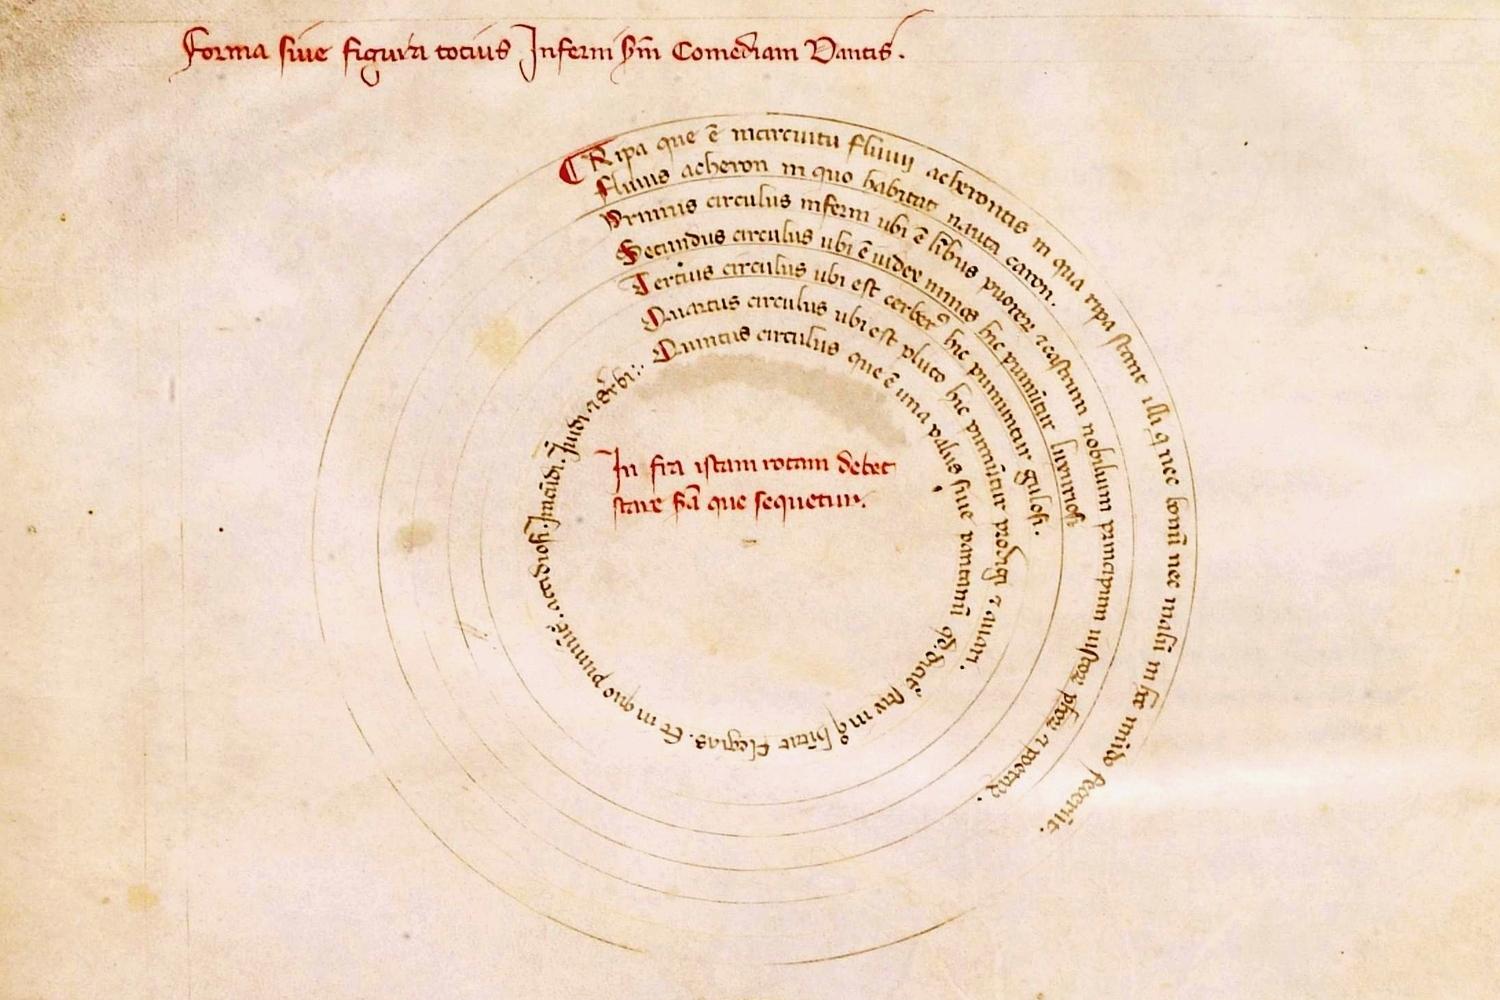 Forma siue figura tocius Inferni s̄m Comediam Dantis.
Ripa que ē incircuitu fluuij acherontis in qua ripa stant illi q nec bonū nec malū in hoc mūdo fecerūt.
Fluuius acheron in quo habitat nauta caron.
Primus circulus inferni ubi ē lībus puoꝝ ⁊ castrum nobilium principum iustoꝝ phoꝝ ⁊ poetaꝝ.
Secundus circulus ubi ē iudex minos hic puniūtur luxuriosi
Tercius circulus ubi est cerberꝰ hic puniuntur gulosi.
Quartus circulus ubi est pluto hic puniūtur prodigi ⁊ auari.
Quintus circulus que ē una palus siue pantanū flegias. Et in quo puniūt̄. accidiosi. Iracūdi. Inuidi ⁊ suꝑbi
In fra istam rotam debet
stare s̄a que sequetur.